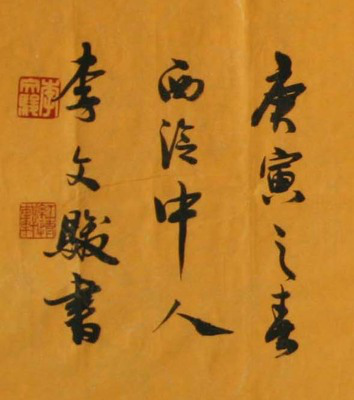 庚寅之春
西泠中人
李文骏書